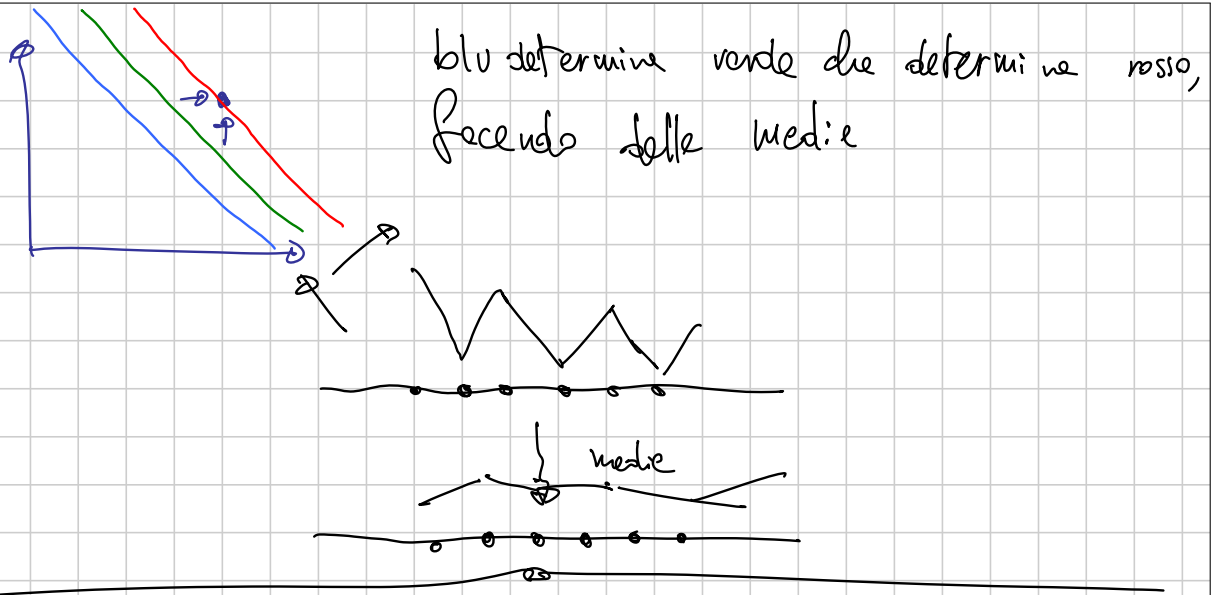 blu determina verde che determina rosso,
facendo delle medie
medie